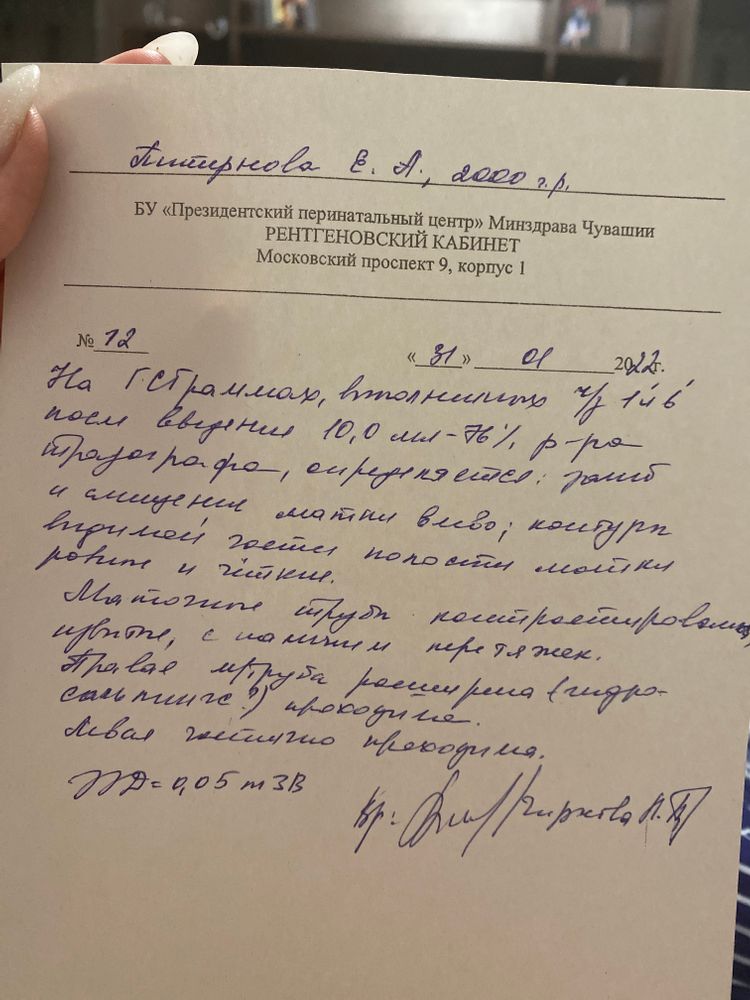 Питирнова Е. А., 2000 г.р.
БУ «Президентский перинатальный центр» Минздрава Чувашии
РЕНТГЕНОВСКИЙ КАБИНЕТ
Московский проспект 9, корпус 1
№ 12
«31» 01 2022г.
На ГСГраммах, выполненных ч/з 1' и 6'
после введения 10,0 мл - 76% р-ра
тразографа, определяется: загиб
и смещение матки влево; контуры
видимой части полости матки
ровные и чёткие.
Маточные трубы контрастированы,
извитые, с наличием перетяжек.
Правая м.труба расширена (гидро-
сальпингс?) проходима.
Левая частично проходима.
ЭЭД = 0,05 mЗв
Вр: